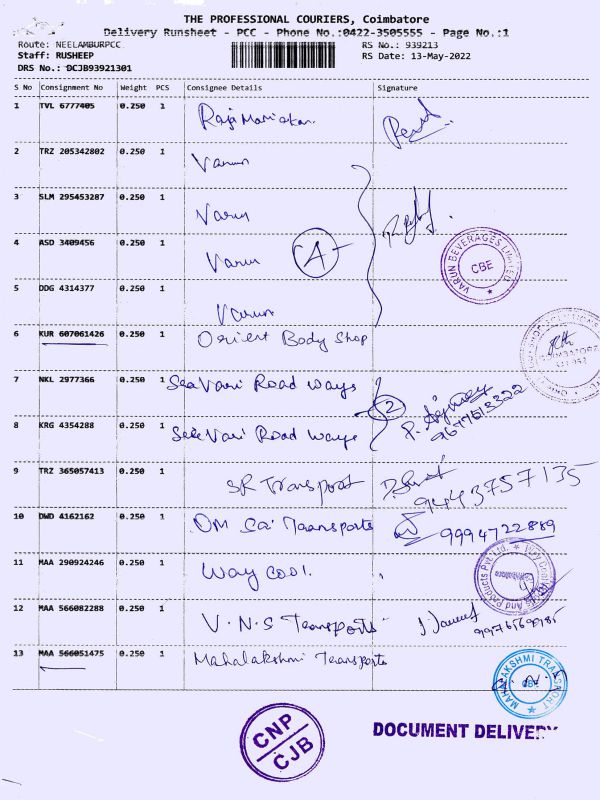 THE PROFESSIONAL COURIERS, Coimbatore
Delivery Runsheet - PCC - Phone No.:0422-3505555 - Page No.:1
Route: NEELAMBURPCC RS No.: 939213
Staff: RUSHEEP RS Date: 13-May-2022
DRS No.: DCJB93921301
S No Consignment No Weight PCS Consignee Details Signature
1 TVL 6777405 0.250 1
2 TRZ 205342802 0.250 1 Varun
3 SLM 295453287 0.250 1 Varun
4 ASD 3409456 0.250 1 Varun
A
VARUN BEVERAGES LIMITED
CBE
5 DDG 4314377 0.250 1 Varun
6 KUR 607061426 0.250 1 Orient Body Shop
7 NKL 2977366 0.250 1 Road ways
2
8 KRG 4354288 0.250 1 Road ways
9677513322
9 TRZ 365057413 0.250 1 SR Transport
9443757135
10 DWD 4162162 0.250 1 OM Sai Transports
9994722889
11 MAA 290924246 0.250 1 Way cool.
Products Pvt. Ltd.
Coimbatore
12 MAA 566082288 0.250 1 V.N.S Transports
13 MAA 566051475 0.250 1 Mahalakshmi Transports
MAHALAKSHMI TRANSPORT
CBE
CNP
CJB
DOCUMENT DELIVERY